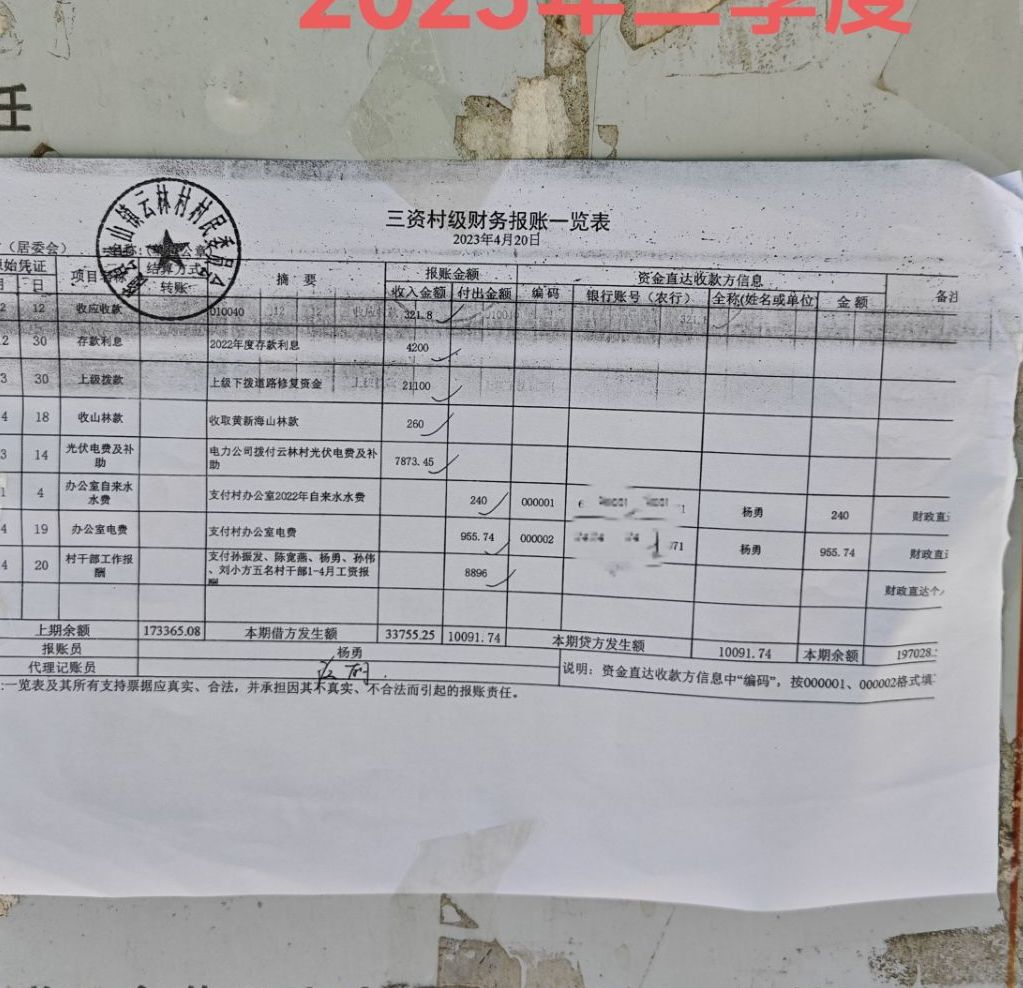 2023年二季度
任
三资村级财务报账一览表
2023年4月20日
（居委会）
云林村村民委员会
始凭证 项目 结算方式 摘 要 报账金额 资金直达收款方信息 备注
月 日 转账 收入金额 付出金额 编码 银行账号（农行） 全称(姓名或单位 金额
2 12 收应收款 010040 12 12 收应 321.8
2 30 存款利息 2022年度存款利息 4200
3 30 上级拨款 上级下拨道路修复资金 21100
4 18 收山林款 收取黄新海山林款 260
3 14 光伏电费及补助 电力公司拨付云林村光伏电费及补助 7873.45
1 4 办公室自来水水费 支付村办公室2022年自来水水费 240 000001 杨勇 240 财政直
4 19 办公室电费 支付村办公室电费 955.74 000002 71 杨勇 955.74 财政直
4 20 村干部工作报酬 支付孙振发、陈宽燕、杨勇、孙伟、刘小方五名村干部1-4月工资报酬 8896 财政直达个
上期余额 173365.08 本期借方发生额 33755.25 10091.74 本期贷方发生额 10091.74 本期余额 197028.
报账员 杨勇
代理记账员 说明：资金直达收款方信息中“编码”，按000001、000002格式填
:一览表及其所有支持票据应真实、合法，并承担因其不真实、不合法而引起的报账责任。